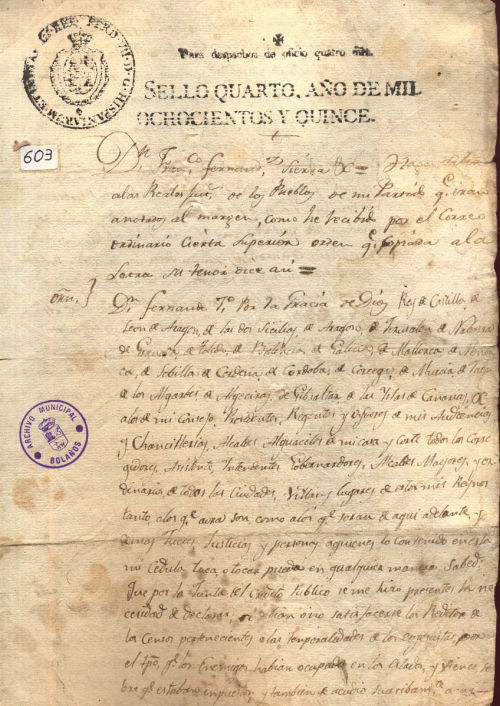 Para despachos de oficio quatro mrs.
SELLO QUARTO, AÑO DE MIL
OCHOCIENTOS Y QUINCE.
603
Dn Franco. Fernandz. Sierra &c = Hago saber
a las Reales Jus. de los Pueblos de mi Partido qe. iran
anotados al margen, como he recibido por el Correo
ordinario cierta Superior orden qe. copiada a la
Letra su tenor dice asi =
Orn. }
Dn. Fernando 7o. Por la Gracia de Dios Rey de Castilla, de
Leon, de Aragon, de las dos Sicilias, de Jerusalen, de Navarra
de Granada, de Toledo, de Valencia, de Galicia, de Mallorca, de Menor
ca, de Sebilla, de Cerdeña, de Cordoba, de Corcega, de Murcia, de Jaen
de los Algarbes, de Algeciras, de Gibraltar, de las Yslas de Canarias, &c
a los de mi Consejo, Presidentes, Regentes y oydores de mis Audiencias
y Chancillerias, Alcaldes Alguaciles de mi casa y Corte, todos los Corre
gidores, Asistente, Intendentes, Gobernadores, Alcaldes Mayores, y or
dinarios, de todas las Ciudades, Villas y lugares de estos mis Reynos
tanto, a los qe. aora son como a los qe. seran de aqui adelante, y
demas Jueces, Justicias, y personas a quienes lo contenido en esta
mi cedula toca, o tocar pueda en qualquier manera Sabed:
Que por la Junta del Credito Publico se me hizo presente la ne
cesidad de declarar, si debian o no satisfacerse los Reditos de
los Censos pertenecientes a las temporalidades de los por
el tpo. qe. los Enemigos habian ocupado en las y vienes so
bre qe. estaban impuestos, y tambien
ARCHIVO MUNICIPAL
BOLAÑOS